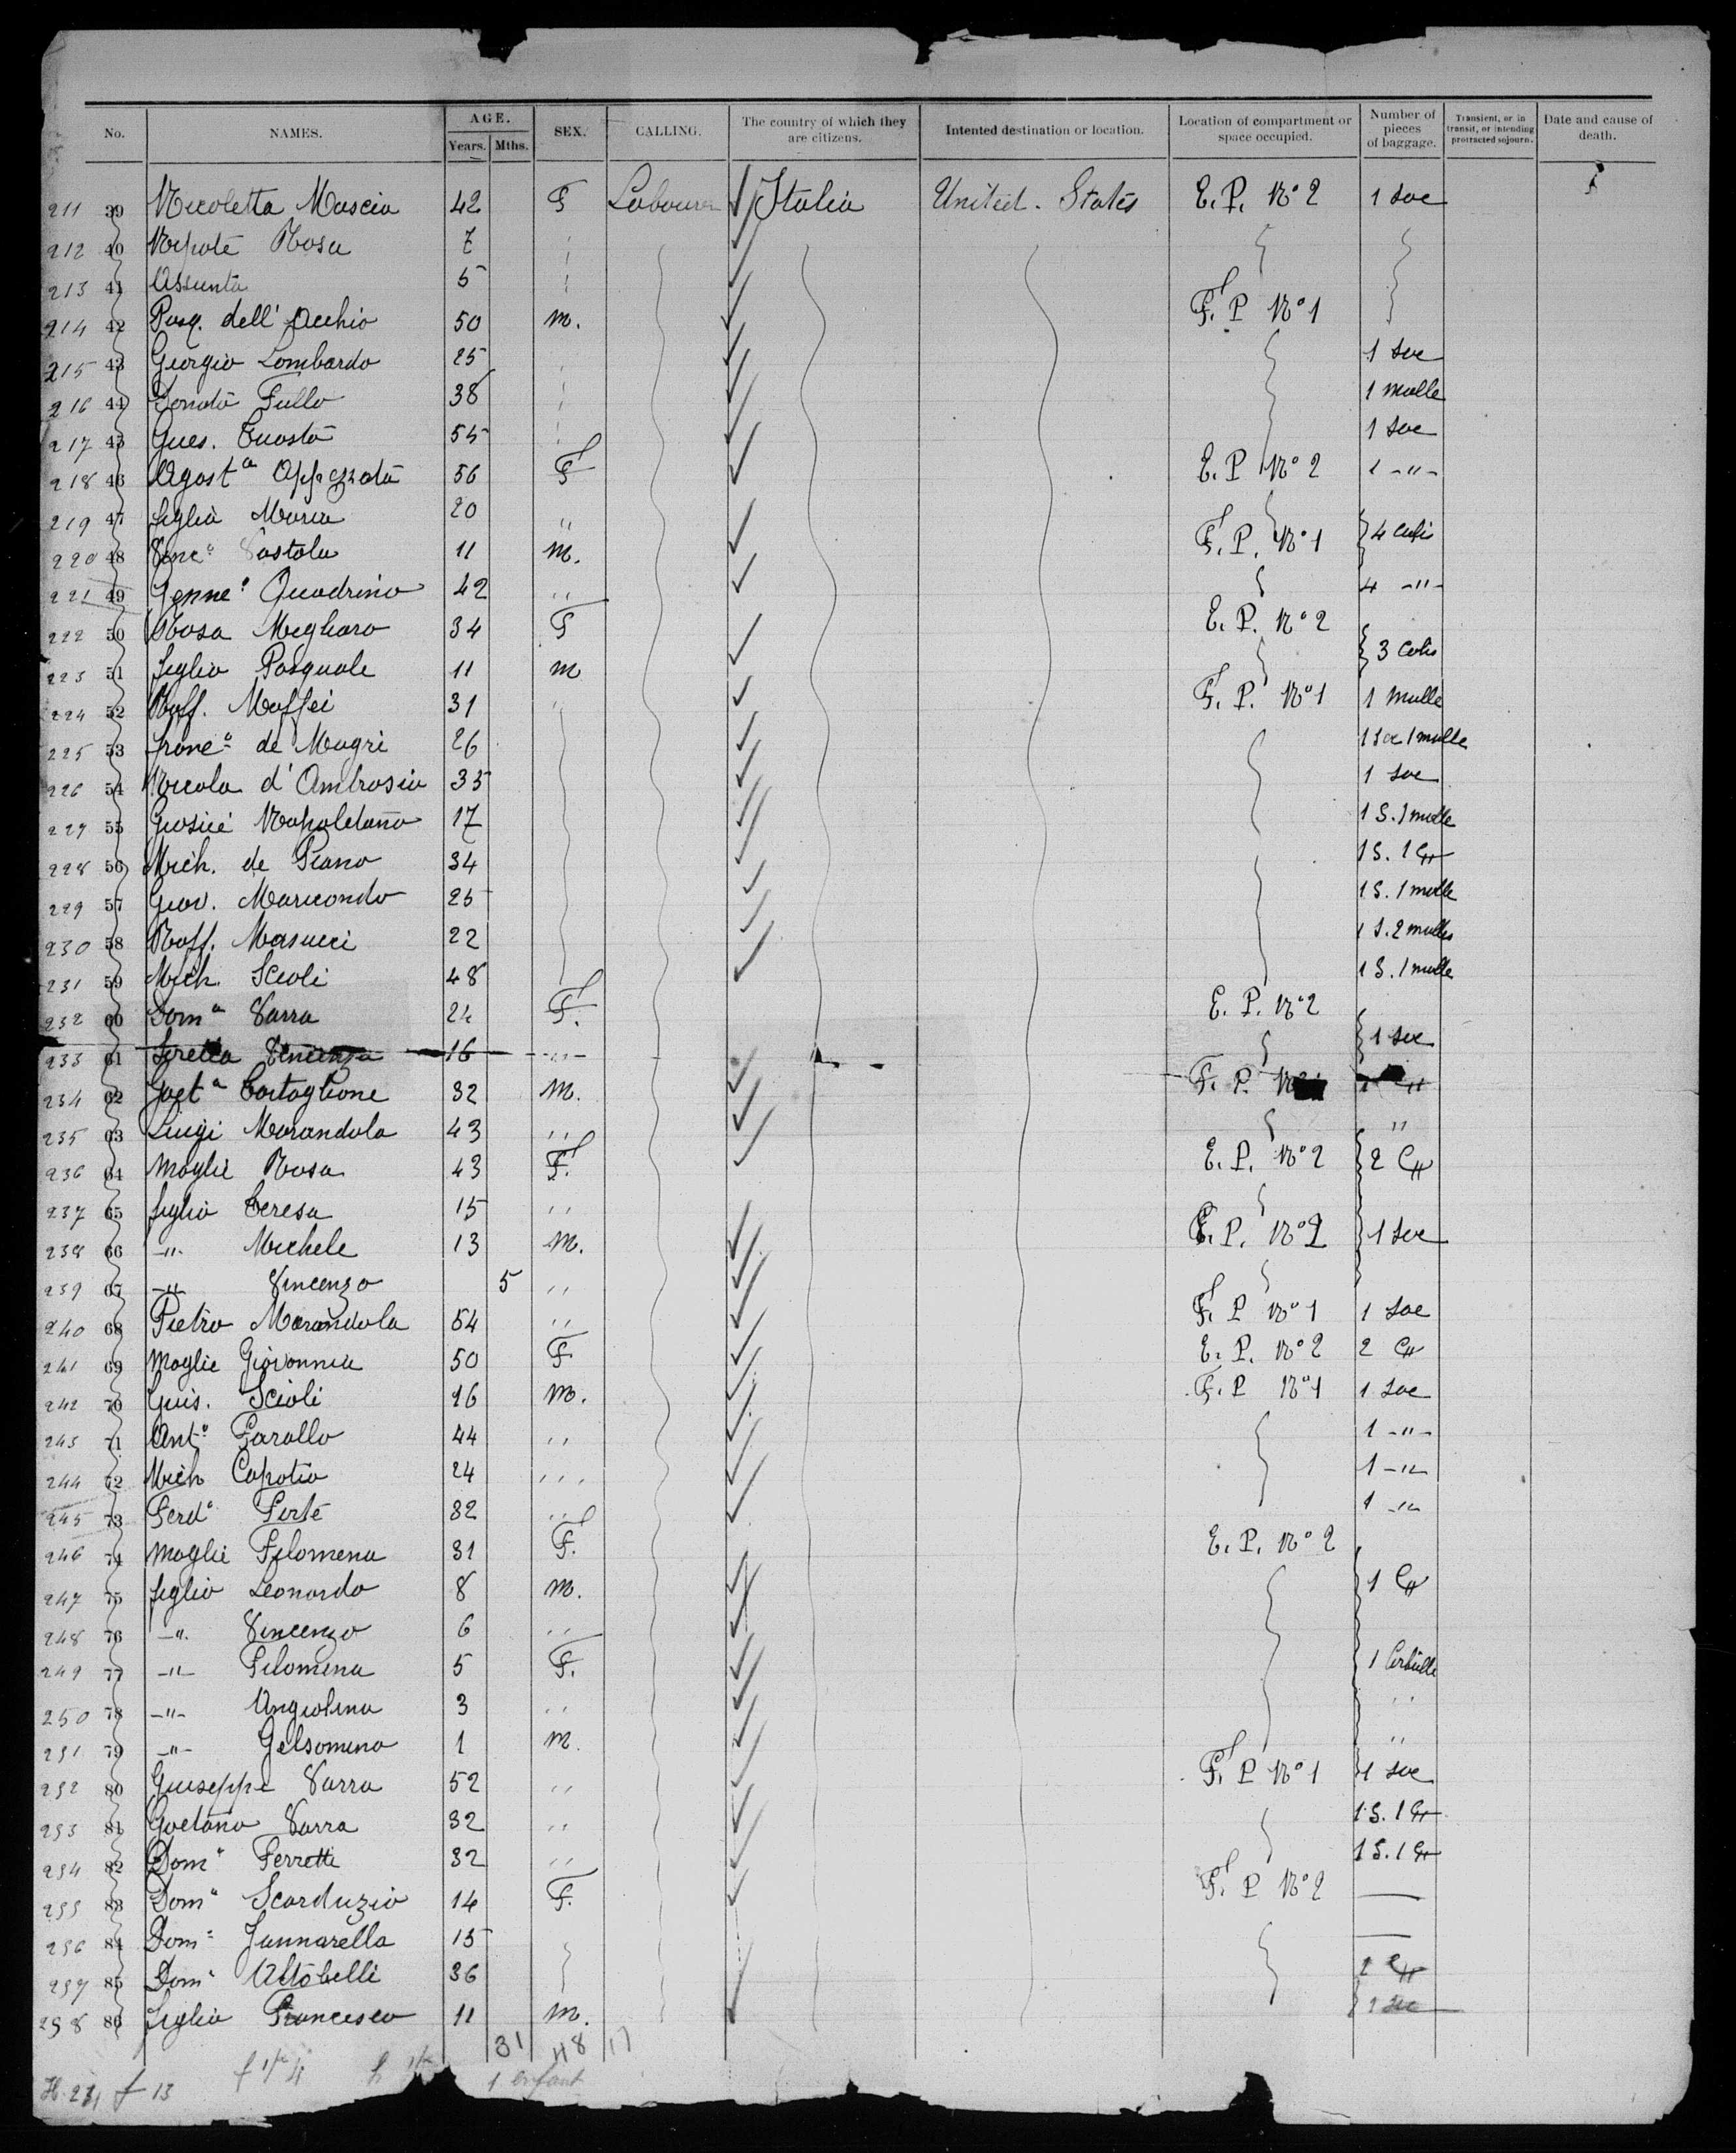 No. NAMES. AGE. Years. Mths. SEX. CALLING. The country of which they are citizens. Intented destination or location. Location of compartment or space occupied. Number of pieces of baggage. Transient, or in transit, or intending protracted sojourn. Date and cause of death.
211 39 Nicoletta Mascia 42 F Labourer Italia United States E. P. No 2 1 Sac
212 40 Nepote Rosa 7
213 41 Assunta 5
214 42 Pasq. dell' Occhio 50 m. F. P No 1
215 43 Giorgio Lombardo 25 1 Sac
216 44 Donato Fullo 38 1 malle
217 45 55 1 Sac
218 46 Agost a 56 F E. P No 2 1 -"-
219 47 figlia Maria 20 "
220 48 11 m. F. P. No 1 4 Colis
221 49 Genne o Quadrino 42 " 4 -"-
222 50 Rosa Megliaro 34 F E. P. No 2
223 51 figlio Pasquale 11 m 3 Colis
224 52 Raff. Maffei 31 " F. P. No 1 1 malle
225 53 Franc o de Magri 26 1 Sac 1 malle
226 54 Nicola d'Ambrosio 35 1 Sac
227 55 Napoletano 17 1 S. 1 malle
228 56 Mich. de Piano 34 1 S. 1 C"
229 57 Giov. Maricondo 25 1 S. 1 malle
230 58 Raff. Masucci 22 1 S. 2 malles
231 59 Mich. Scioli 48 1 S. 1 malle
232 60 Dom a Varra 24 F. E. P. No 2
233 61 Vincenza 16 -"- 1 Sac
234 62 Gaet a 32 m. F. P.
235 63 Luigi Marandola 43 " "
236 64 moglie Rosa 43 F. E. P. No 2 2 C"
237 65 figlia Teresa 15 "
238 66 -"- Michele 13 m. E. P. No 2 1 Sac
239 67 -"- Vincenzo 5 "
240 68 Pietro Marandola 54 " F. P No 1 1 Sac
241 69 moglie Giovannia 50 F E. P. No 2 2 C"
242 70 Guis. Scioli 16 m. F. P No 1 1 Sac
243 71 Ant o Farallo 44 " 1 -"-
244 72 Mich Capotio 24 " 1 -"-
245 73 Ferd o Forte 32 " 1 -"-
246 74 moglie Filomena 31 F. E. P. No 2
247 75 figlio Leonardo 8 m. 1 C"
248 76 -"- Vincenzo 6 "
249 77 -"- Filomena 5 F. 1 Corbeille
250 78 -"- Angiolina 3 " "
251 79 -"- Gelsomino 1 m. "
252 80 Giuseppe Varra 52 " F. P No 1 1 Sac
253 81 Gaetano Varra 32 " 1 S. 1 C"
254 82 Dom o Ferretti 32 " 1 S. 1 C"
255 83 Dom a Scarduzio 14 F. F. P No 2 —
256 84 Dom a Jannarella 15 —
257 85 Dom a Altobelli 36 2 C"
258 86 figlio Francesco 11 m. 1 Sac
31 48 17
f 13 1 enfant